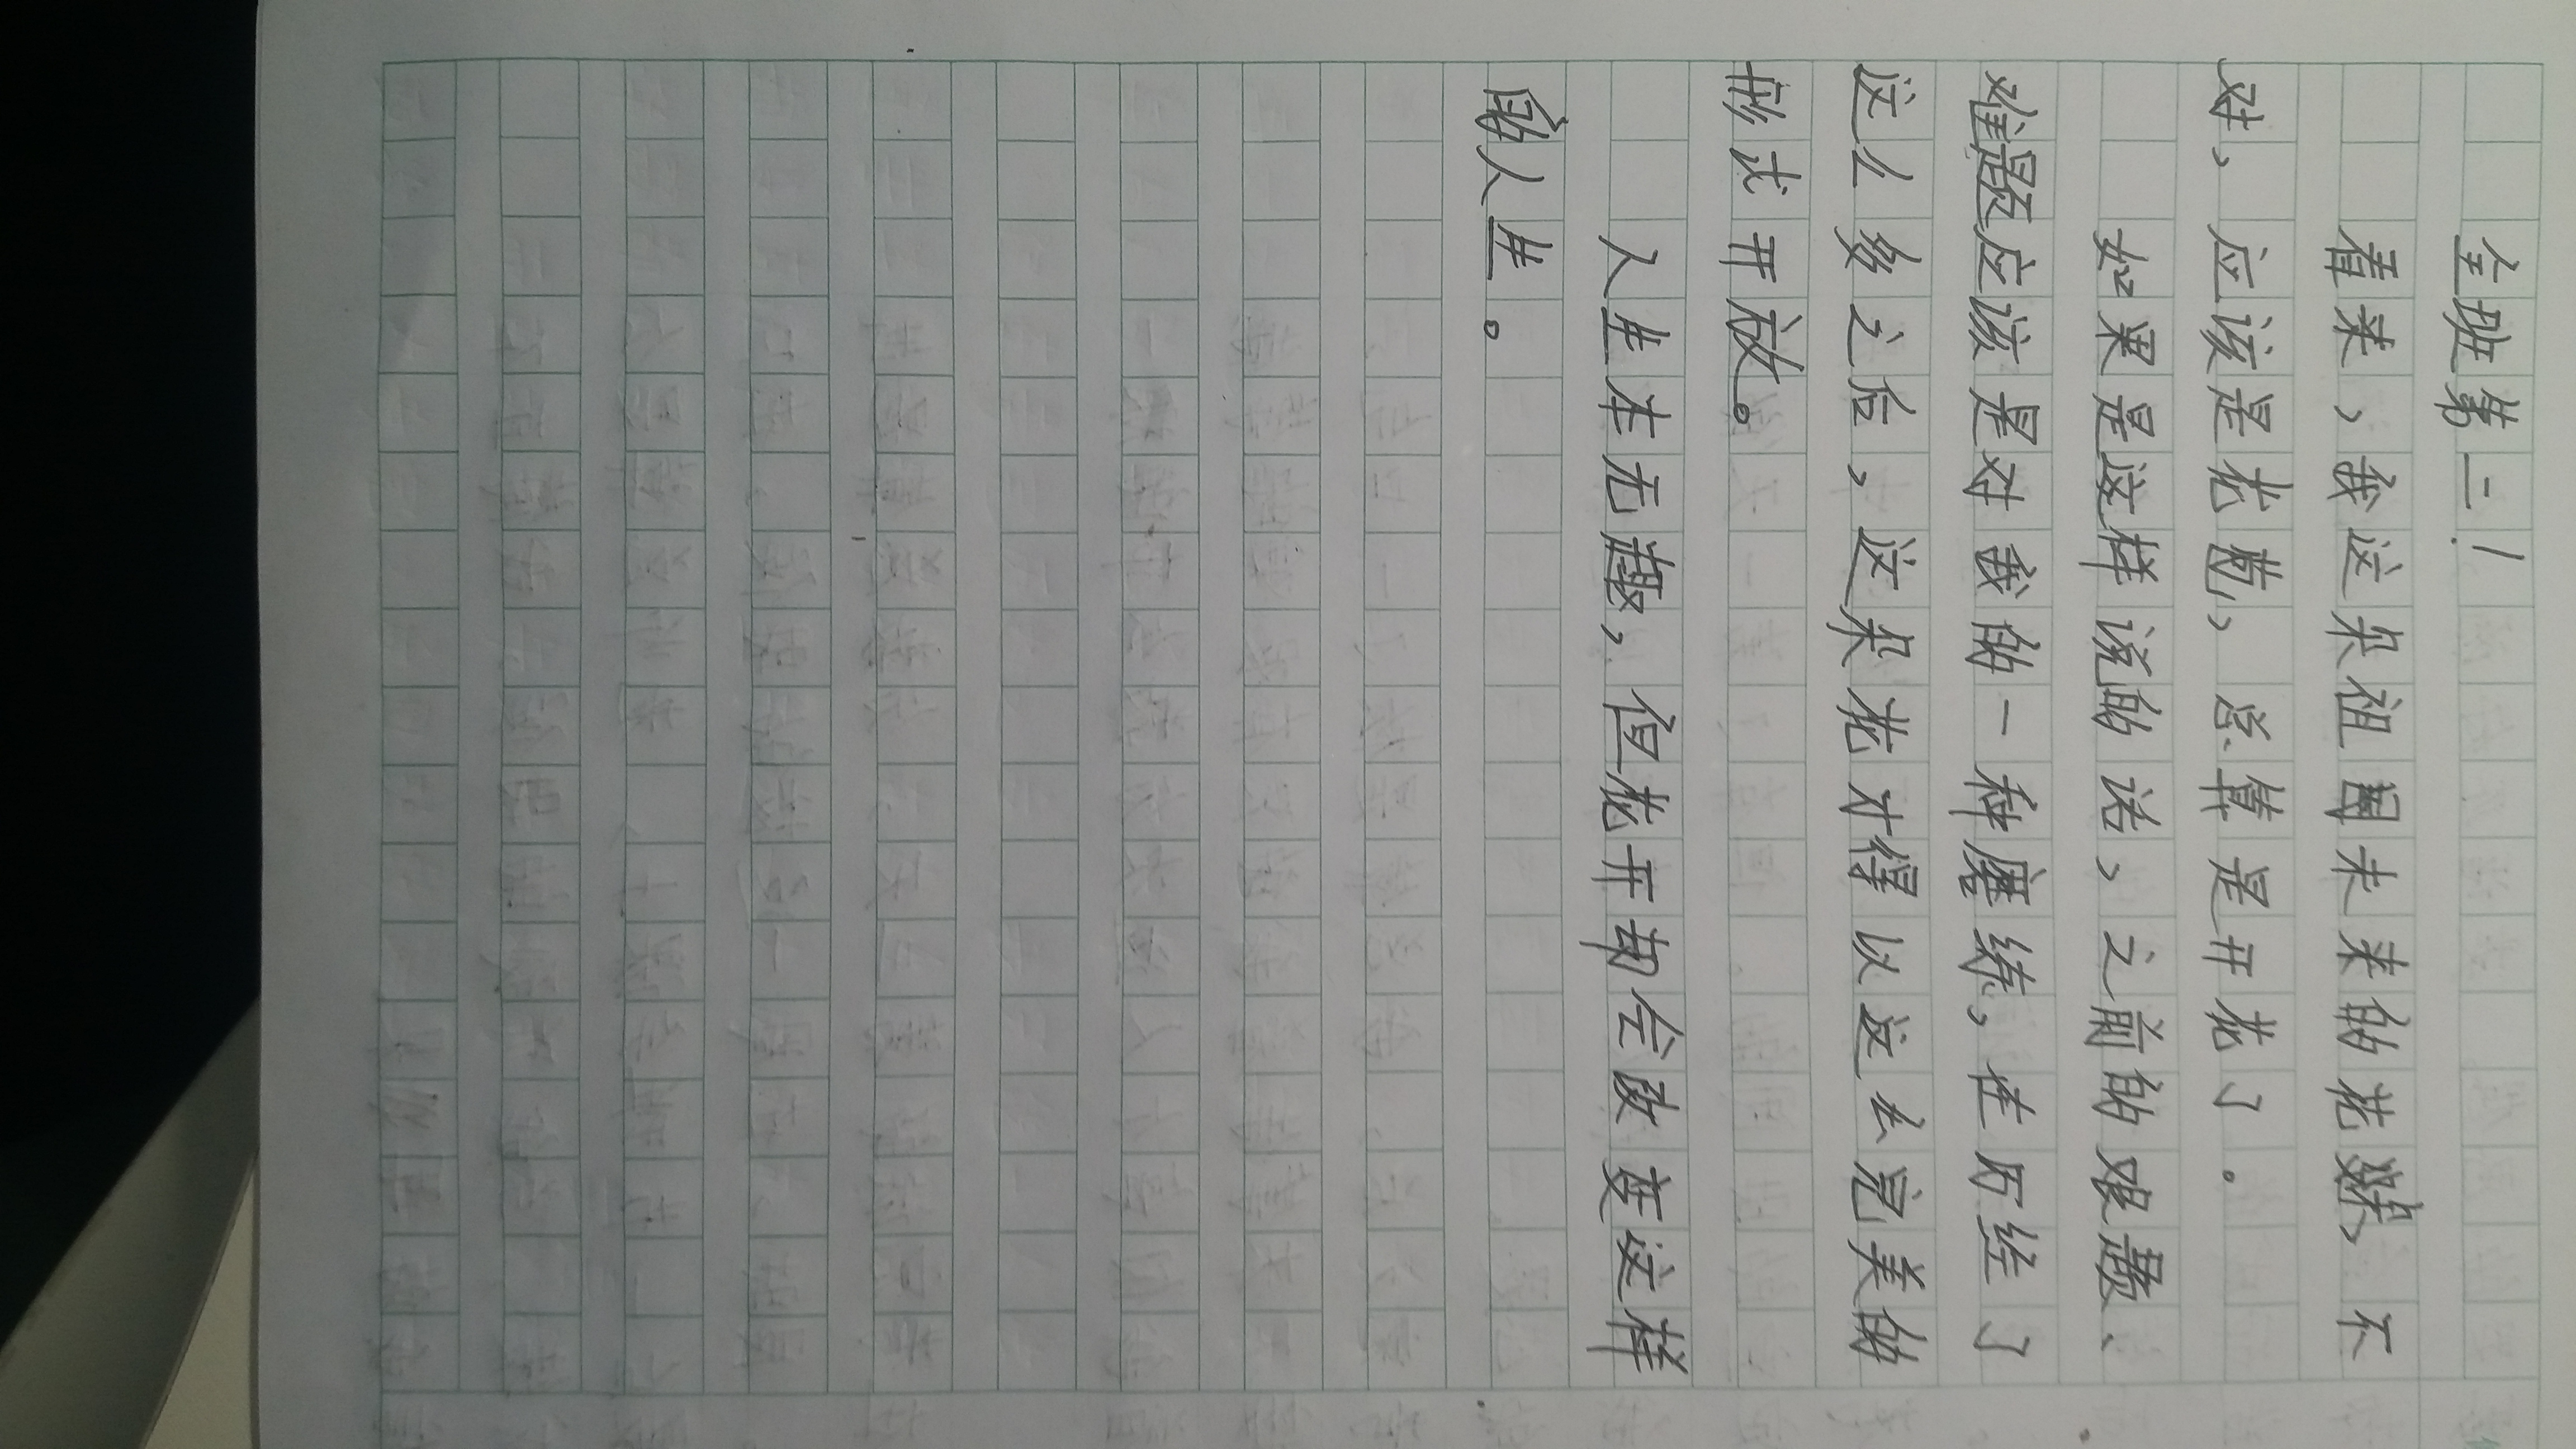 全班第二！
看来，我这朵祖国未来的花骨朵，不
对，应该是花苞，总算是开花了。
如果是这样说的话，之前的艰难、
难题应该是对我的一种磨练，在历经了
这么多之后，这朵花才得以这么完美的
形式开放。
人生本无趣，但花开却会改变这样
的人生。